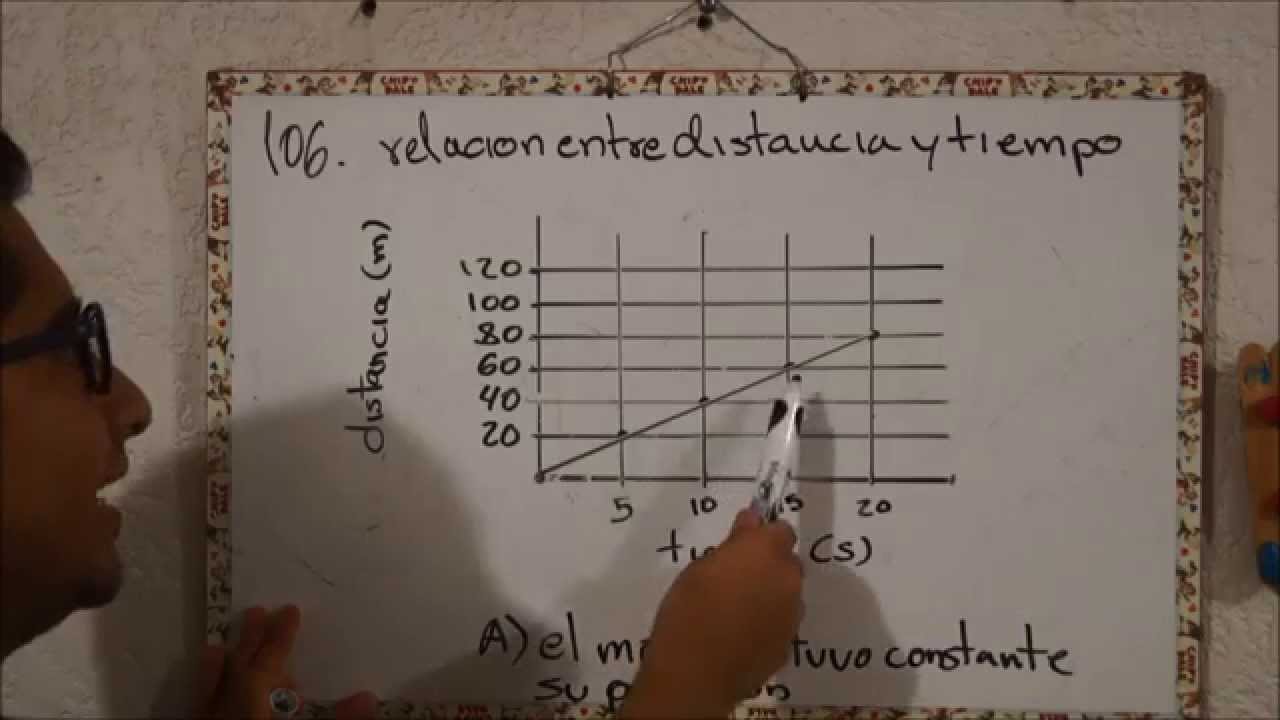 106. relacion entre distancia y tiempo
distancia (m)
120
100
80
60
40
20
5 10 15 20
(s)
A) el tuvo constante
su